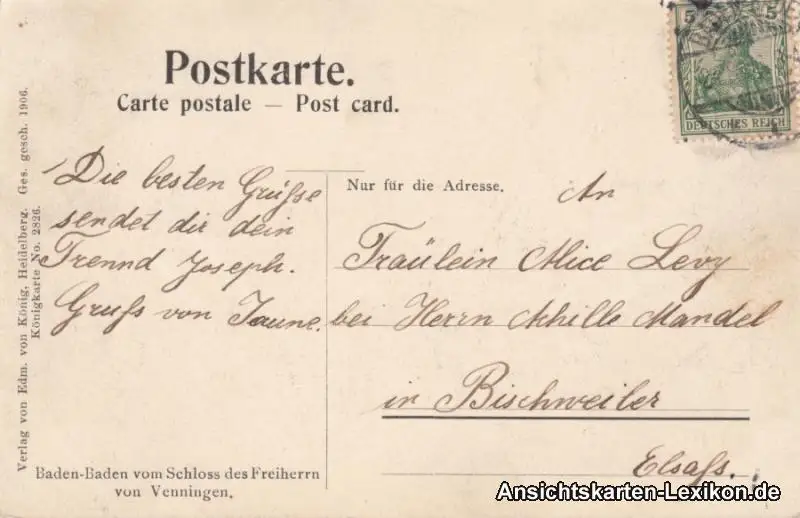 Postkarte.
Carte postale — Post card.
5 5
DEUTSCHES REICH
Verlag von Edm. von König, Heidelberg. Ges. gesch. 1906.
Königkarte No. 2826.
Die besten Grüsse
sendet dir dein
Freund Joseph.
Gruss von
Nur für die Adresse.
An
Fräulein Alice Levy
bei Herrn Achille Mandel
in Bischweiler
Elsass.
Baden-Baden vom Schloss des Freiherrn
von Venningen.
Ansichtskarten-Lexikon.de